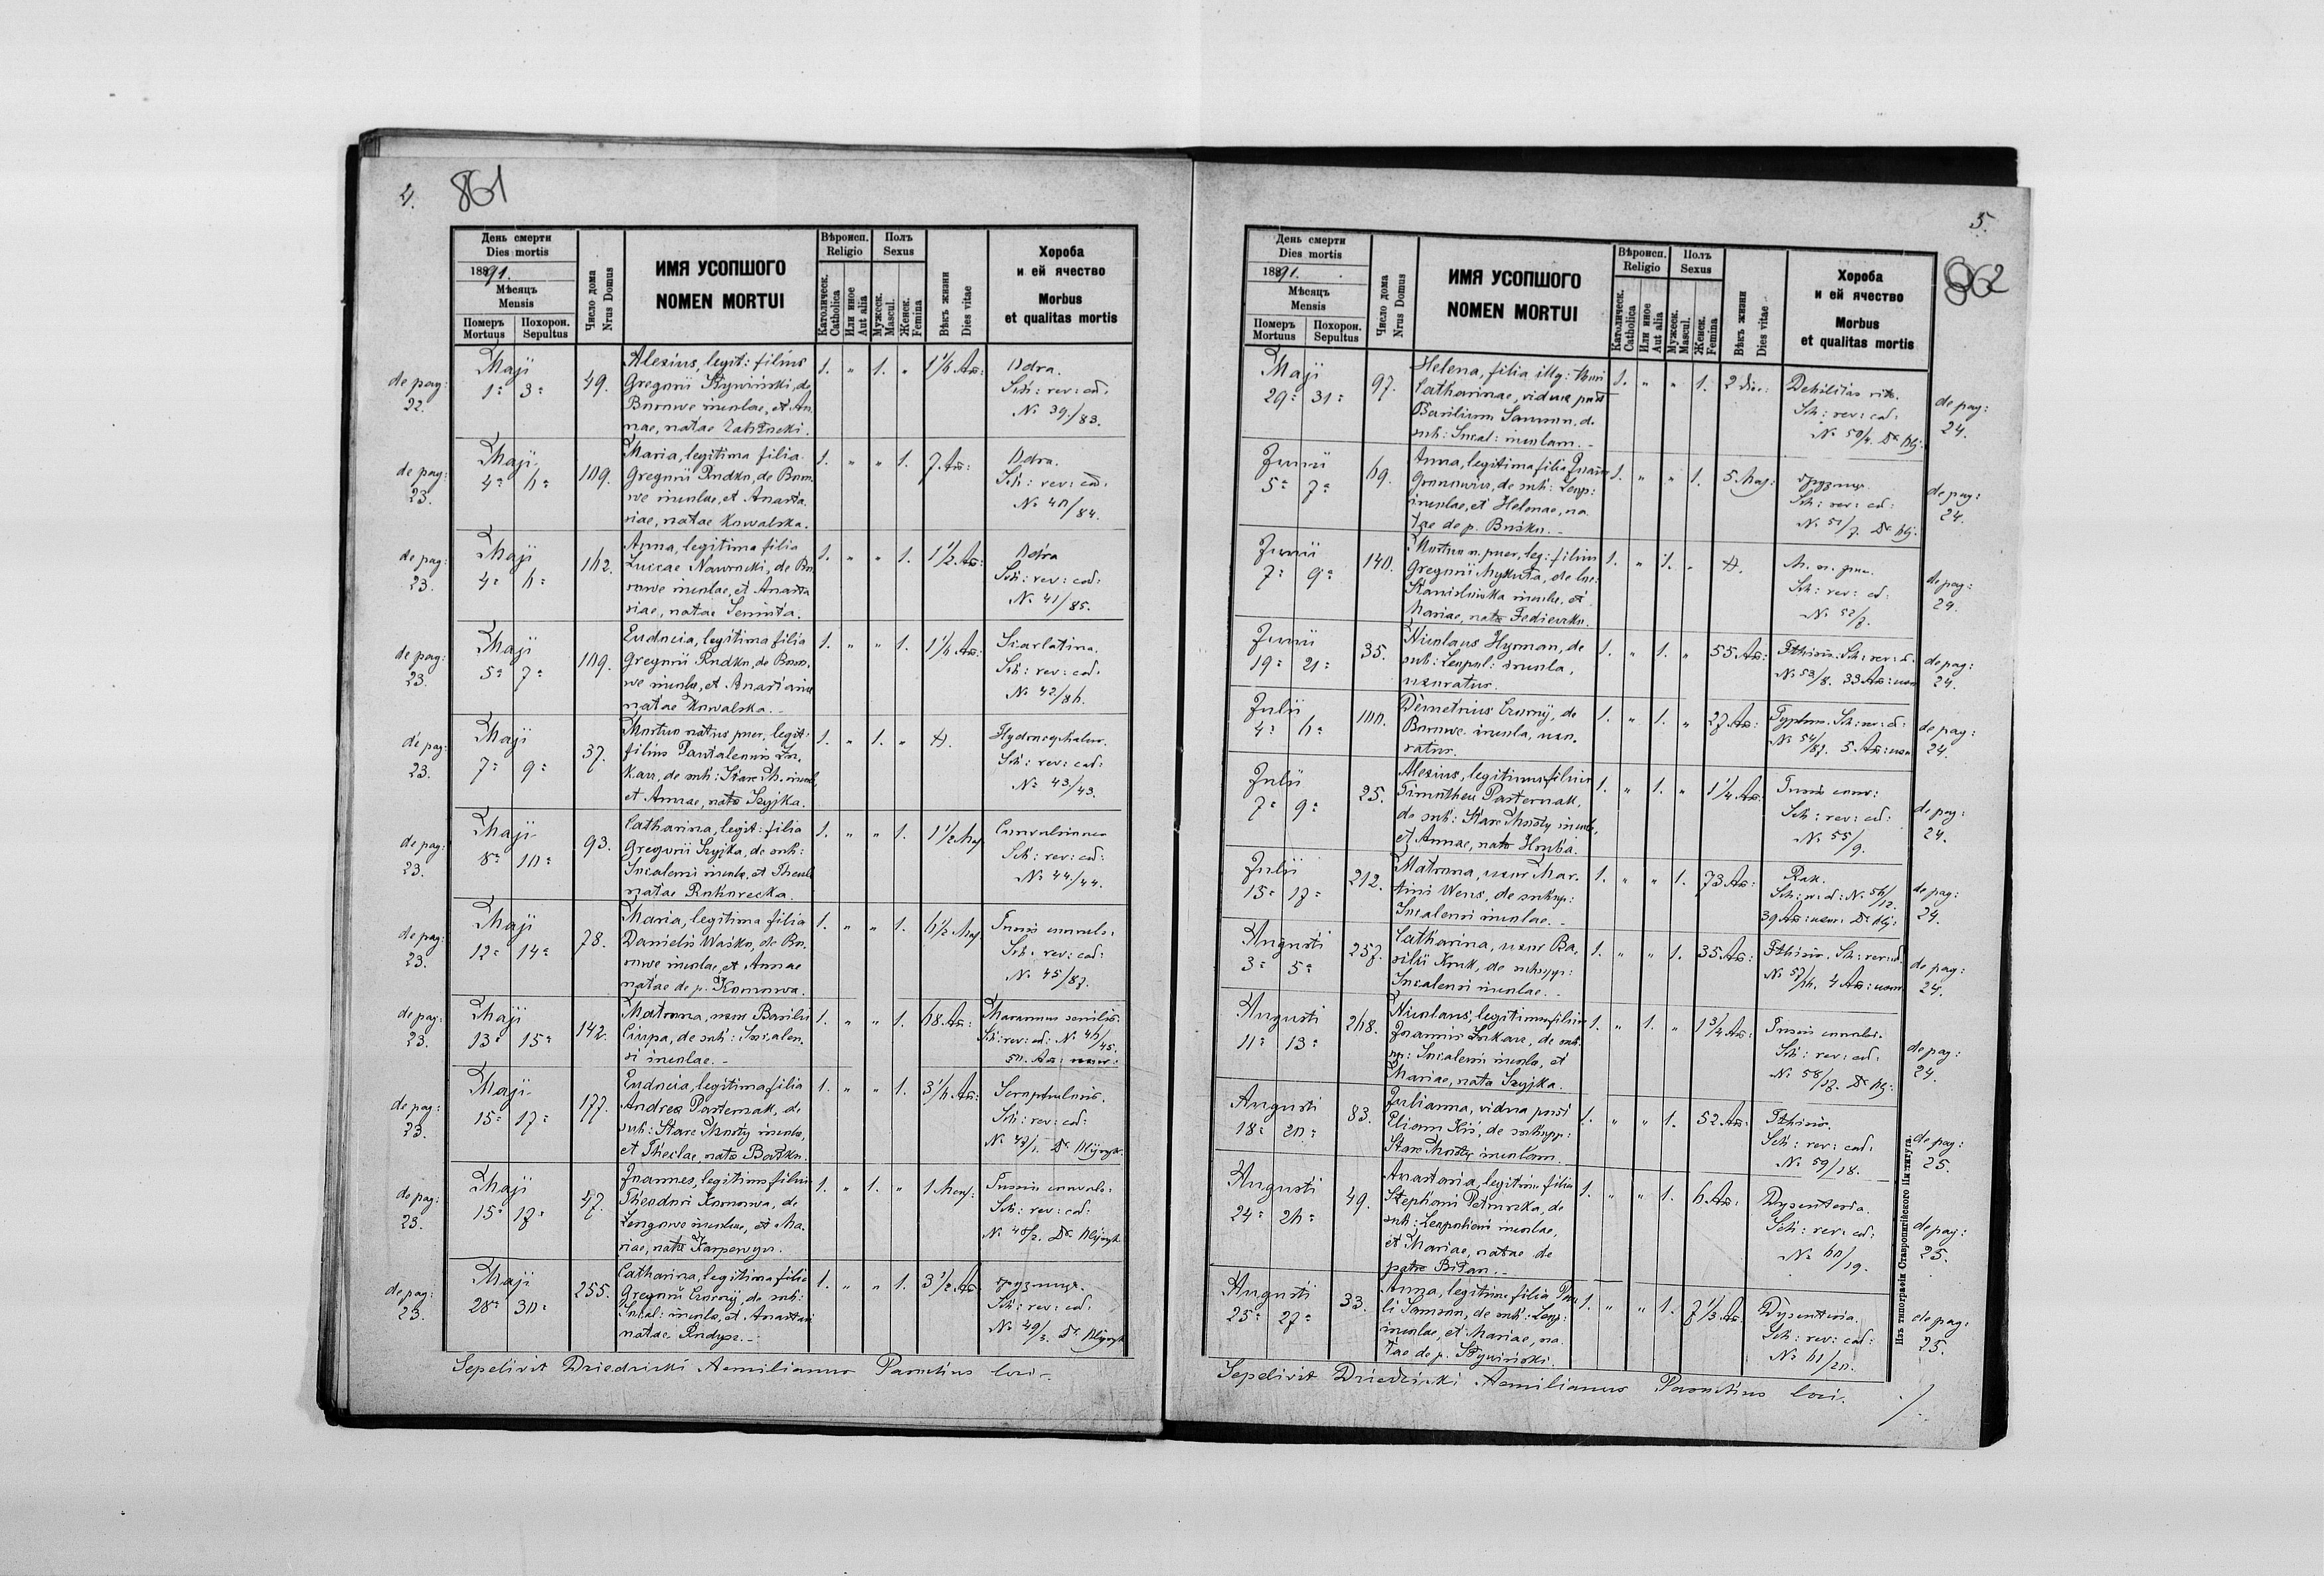 4.
861
День смерти
Dies mortis
1891.
Мѣсяцъ
Mensis
Померъ
Mortuus
Похорон.
Sepultus
Число дома
Nrus Domus
ИМЯ УСОПШОГО
NOMEN MORTUI
Вѣроисп.
Religio
Католическ.
Catholica
Или иное
Aut alia
Полъ
Sexus
Мужеск.
Mascul.
Женск.
Femina
Вѣкъ жизни
Dies vitae
Хороба
и ей ячество
Morbus
et qualitas mortis
de pag: 22.
Maji
1. 3. 49.
Alexius, legit: filius
Gregorii Stywiński, de
nae, natae
1. " 1. "
Odra.
Sch: rev: cad:
No 39./83.
de pag: 23.
Maji
4. 6. 109.
Maria, legitima filia
Gregorii Rudko, de
we incolae, et Anasta
siae, natae Kowalska.
1. " " 1. 7 An:
Odra.
Sch: rev: cad:
No 40/84.
de pag: 23.
Maji
4. 6. 162.
Anna, legitima filia
Luccae Nawrocki, de
incolae, et Anasta
siae, natae Seniuta.
1. " " 1. 1 1/2 An:
Odra
Sch: rev: cad:
No 41/85.
de pag: 23.
Maji
5. 7. 109.
Eudocia, legitima filia
Gregorii Rudko, de
we incolae, et Anastasiae
natae Kowalska.
1. " " 1. 1 1/6 An:
Scarlatina.
Sch: rev: cad:
No 42/86.
de pag: 23.
Maji
7. 9. 37.
Mortuo natus puer, legit:
filius Pantalemonis
et Annae, nata Szyjka.
1. " 1. "
Hydrocephalus.
Sch: rev: cad:
No 43/43.
de pag: 23.
Maji
8. 10. 93.
Catharina, legit: filia
Gregorii Szyjka, de sub:
Inscalensi incolae, et Theclae
natae
1. " " 1. 1 1/2 Mens
Convulsiones
Sch: rev: cad:
No 44./44.
de pag: 23.
Maji
12. 14. 78.
Maria, legitima filia
Danielis Waśko, de
incolae, et Annae
natae de p. Komowa.
1. " " 1. 6 1/2 Mens
Tussis convuls:
Sch: rev: cad:
No 45/87.
de pag: 23.
Maji
13. 15. 142.
Matrona, uxor Basilii
Ciurpa, de sub: Inscalen
si incolae.
1. " " 1. 68 An:
Marasmus senilis.
Sch: rev: cad: No 46/45.
50. An: uxor:
de pag: 23.
Maji
15. 17. 177.
Eudocia, legitima filia
Andrea Pasternak, de
sub: Stare Mosty incolae,
et Theclae, nata Boćko.
1. " " 1. 3 1/6 An:
Scrophulosis.
Sch: rev: cad:
No 47/1.
de pag: 23.
Maji
15. 17. 47.
Joannes, legitimus filius
Theodori Komowa, de
incolae, et Ma
riae, nata
1. " 1. " 1 Mens:
Tussis convuls:
Sch: rev: cad:
No 48/2.
de pag: 23.
Maji
28. 30. 255.
Catharina, legitima filia
Gregorii Czornij, de sub:
Inscal: incolae, et Anastasiae
natae
1. " " 1. 3 1/2 An:
Sch: rev: cad:
No 49/3.
Sepelivit Dziedzicki Aemilianus Parochus loci.
5.
862
День смерти
Dies mortis
1891.
Мѣсяцъ
Mensis
Померъ
Mortuus
Похорон.
Sepultus
Число дома
Nrus Domus
ИМЯ УСОПШОГО
NOMEN MORTUI
Вѣроисп.
Religio
Католическ.
Catholica
Или иное
Aut alia
Полъ
Sexus
Мужеск.
Mascul.
Женск.
Femina
Вѣкъ жизни
Dies vitae
Хороба
и ей ячество
Morbus
et qualitas mortis
Maji
29. 31. 97.
Helena, filia illg: thori
Catharinae, viduae post
Basilium Samson, de
sub: Inscal: incolam.
1. " " 1. 2 Die:
Debilitas vit.
Sch: rev: cad:
No 50/4.
de pag: 24.
Junii
5. 7. 69.
Anna, legitima filia
de sub: Leop:
incolae, et Helenae, na
tae de p. Buśko.
1. " " 1. 5 Mens:
Sch: rev: cad:
No 51/7.
de pag: 24.
Junii
7. 9. 140.
Mortuo n. puer, leg: filius
Gregorii Mykyta, de
incolae, et
Mariae, nata
1. " 1. "
M. n. puer.
Sch: rev: cad:
No 52/7.
de pag: 24.
Junii
19. 21. 35.
Nicolaus Hyrman, de
sub: Leopol: incola,
uxoratus.
1. " 1. " 55 An:
Pthisis. Sch: rev: cad:
No 53/8. 33 An: uxor
de pag: 24.
Julii
4. 6. 100.
Demetrius Czornij, de
incola, uxo
ratus.
1. " 1. " 27 An:
Typhus. Sch: rev: cad:
No 54/87. 5 An: uxor
de pag: 24.
Julii
7. 9. 25.
Alexius, legitimus filius
Timothei Pasternak,
de sub: Stare Mosty incolae,
et Annae, nata
1. " 1. " 1 1/4 An:
Tussis conv:
Sch: rev: cad:
No 55/9.
de pag: 24.
Julii
15. 17. 212.
Matrona, uxor Mar
tini Wons, de
Inscalensi incolae.
1. " " 1. 73 An:
Rak.
Sch: r: cad: No 56/12.
39 An: uxor:
de pag: 24.
Augusti
3. 5. 257.
Catharina, uxor Ba
silii Kruk, de
Inscalensi incolae.
1. " " 1. 35 An:
Pthisis. Sch: rev: cad:
No 57/16. 4 An: uxor
de pag: 24.
Augusti
11. 13. 268.
Nicolaus, legitimus filius
Joannis de sub
Inscalensi incolae, et
Mariae, nata Szyjka.
1. " 1. " 1 3/4 An:
Tussis convuls.
Sch: rev: cad:
No 58/17.
de pag: 24.
Augusti
18. 20. 83.
Julianna, vidua post
Eliam Kiś, de
Stare Mosty incolam.
1. " " 1. 52 An:
Pthisis.
Sch: rev: cad:
No 59/18.
de pag: 25.
Augusti
24. 26. 49.
Anastasia, legitima filia
Stephani de
sub: Leopoliensi incolae,
et Mariae, natae de
patre Bitan.
1. " " 1. 6 An:
Dysenteria.
Sch: rev: cad:
No 60/19.
de pag: 25.
Augusti
25. 27. 33.
Anna, legitima filia Pau
li Samson, de sub: Leop:
incolae, et Mariae, na
tae de p. Stywiński.
1. " " 1. 7 1/3 An:
Dysenteria.
Sch: rev: cad:
No 61/20.
de pag: 25.
Изъ типографіи Ставропигійского Института.
Sepelivit Dziedzicki Aemilianus Parochus loci.